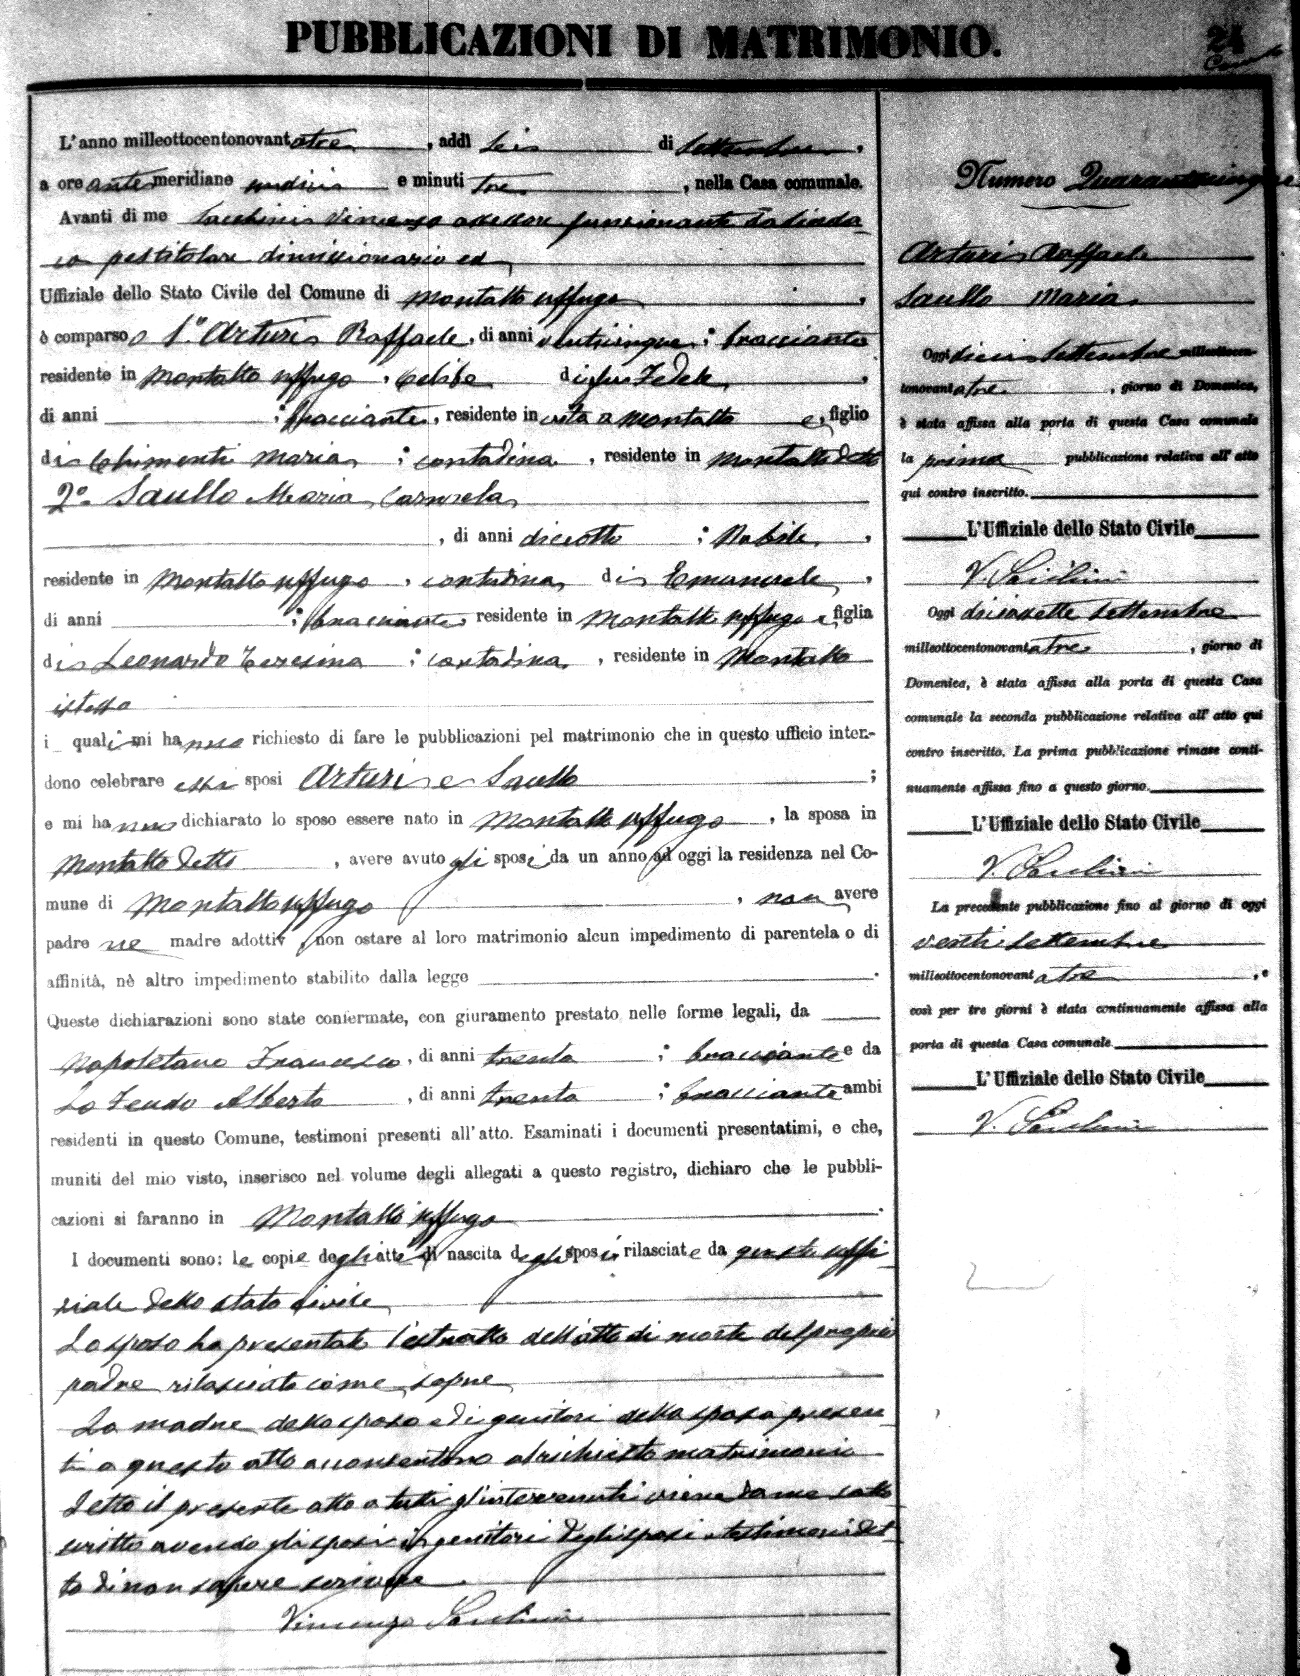 PUBBLICAZIONI DI MATRIMONIO.
24
L'anno milleottocentonovantatre, addì sei di Settembre,
a ore antemeridiane undici e minuti tre, nella Casa comunale.
Avanti di me Vincenzo assessore funzionante da Sinda-
co pel titolare dimissionario ed
Uffiziale dello Stato Civile del Comune di Montalto Uffugo,
è comparso 1º Arturi Raffaele, di anni venticinque; bracciante
residente in Montalto Uffugo, celibe di fu Fedele,
di anni ; bracciante, residente in vita a Montalto e, figlio
di Chimenti Maria; contadina, residente in Montalto detto
2º Saullo Maria Carmela
, di anni diciotto; Nubile,
residente in Montalto Uffugo, contadina, di Emanuele,
di anni ; bracciante residente in Montalto Uffugo e, figlia
di Leonardo Teresina; contadina, residente in Montalto
istesso
i quali mi hanno richiesto di fare le pubblicazioni pel matrimonio che in questo ufficio inten-
dono celebrare essi sposi Arturi e Saullo;
e mi hanno dichiarato lo sposo essere nato in Montalto Uffugo, la sposa in
Montalto detto, avere avuto gli sposi da un anno ad oggi la residenza nel Co-
mune di Montalto Uffugo, non avere
padre ne madre adottiv, non ostare al loro matrimonio alcun impedimento di parentela o di
affinità, nè altro impedimento stabilito dalla legge.
Queste dichiarazioni sono state confermate, con giuramento prestato nelle forme legali, da
Napoletano Francesco, di anni trenta; bracciante e da
Lo Feudo Alberto, di anni trenta; bracciante ambi
residenti in questo Comune, testimoni presenti all'atto. Esaminati i documenti presentatimi, e che,
muniti del mio visto, inserisco nel volume degli allegati a questo registro, dichiaro che le pubbli-
cazioni si faranno in Montalto Uffugo.
I documenti sono: le copie degli atti di nascita degli sposi rilasciate da questo uffi
ziale dello stato civile
Lo sposo ha presentato l'estratto dell'atto di morte del proprio
padre rilasciato come sopra
La madre dello sposo ed i genitori della sposa presen-
ti a questo atto acconsentono al richiesto matrimonio
Letto il presente atto a tutti gl'intervenuti viene da me sotto
scritto avendo gli sposi i genitori degli sposi e testimoni det-
to di non sapere scrivere.
Vincenzo
Numero Quarantacinque
Arturi Raffaele
Saullo Maria
Oggi dieci Settembre milleottocen-
tonovantatre, giorno di Domenica,
è stata affissa alla porta di questa Casa comunale
la prima pubblicazione relativa all'atto
qui contro inscritto.
L'Uffiziale dello Stato Civile
V.
Oggi diciasette Settembre
milleottocentonovantatre, giorno di
Domenica, è stata affissa alla porta di questa Casa
comunale la seconda pubblicazione relativa all'atto qui
contro inscritto. La prima pubblicazione rimase conti-
nuamente affissa fino a questo giorno.
L'Uffiziale dello Stato Civile
V.
La precedente pubblicazione fino al giorno di oggi
venti Settembre
milleottocentonovantatre, e
così per tre giorni è stata continuamente affissa alla
porta di questa Casa comunale
L'Uffiziale dello Stato Civile
V.